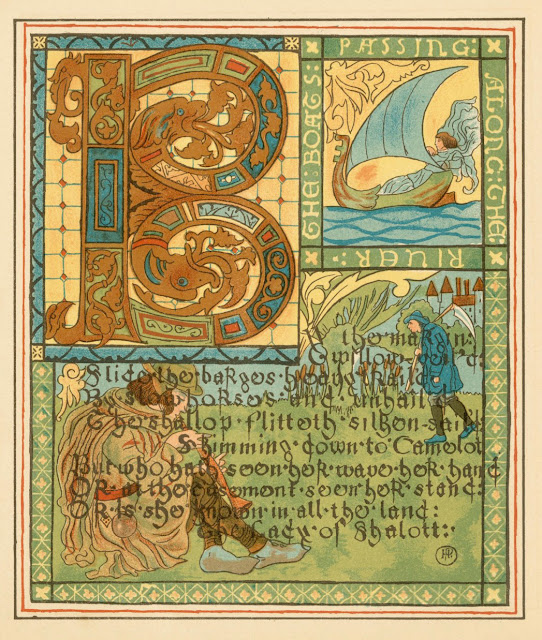 THE: BOATS: PASSING: ALONG: THE: RIVER:
B
the margin:
willow-veil'd:
Slide the barges heavy trail'd
By slow horses and unhail'd
The shallop flitteth silken-sail'd
Skimming down to Camelot
But who hath seen her wave her hand
Or at the casement seen her stand:
Or is she known in all the land:
The Lady of Shalott: